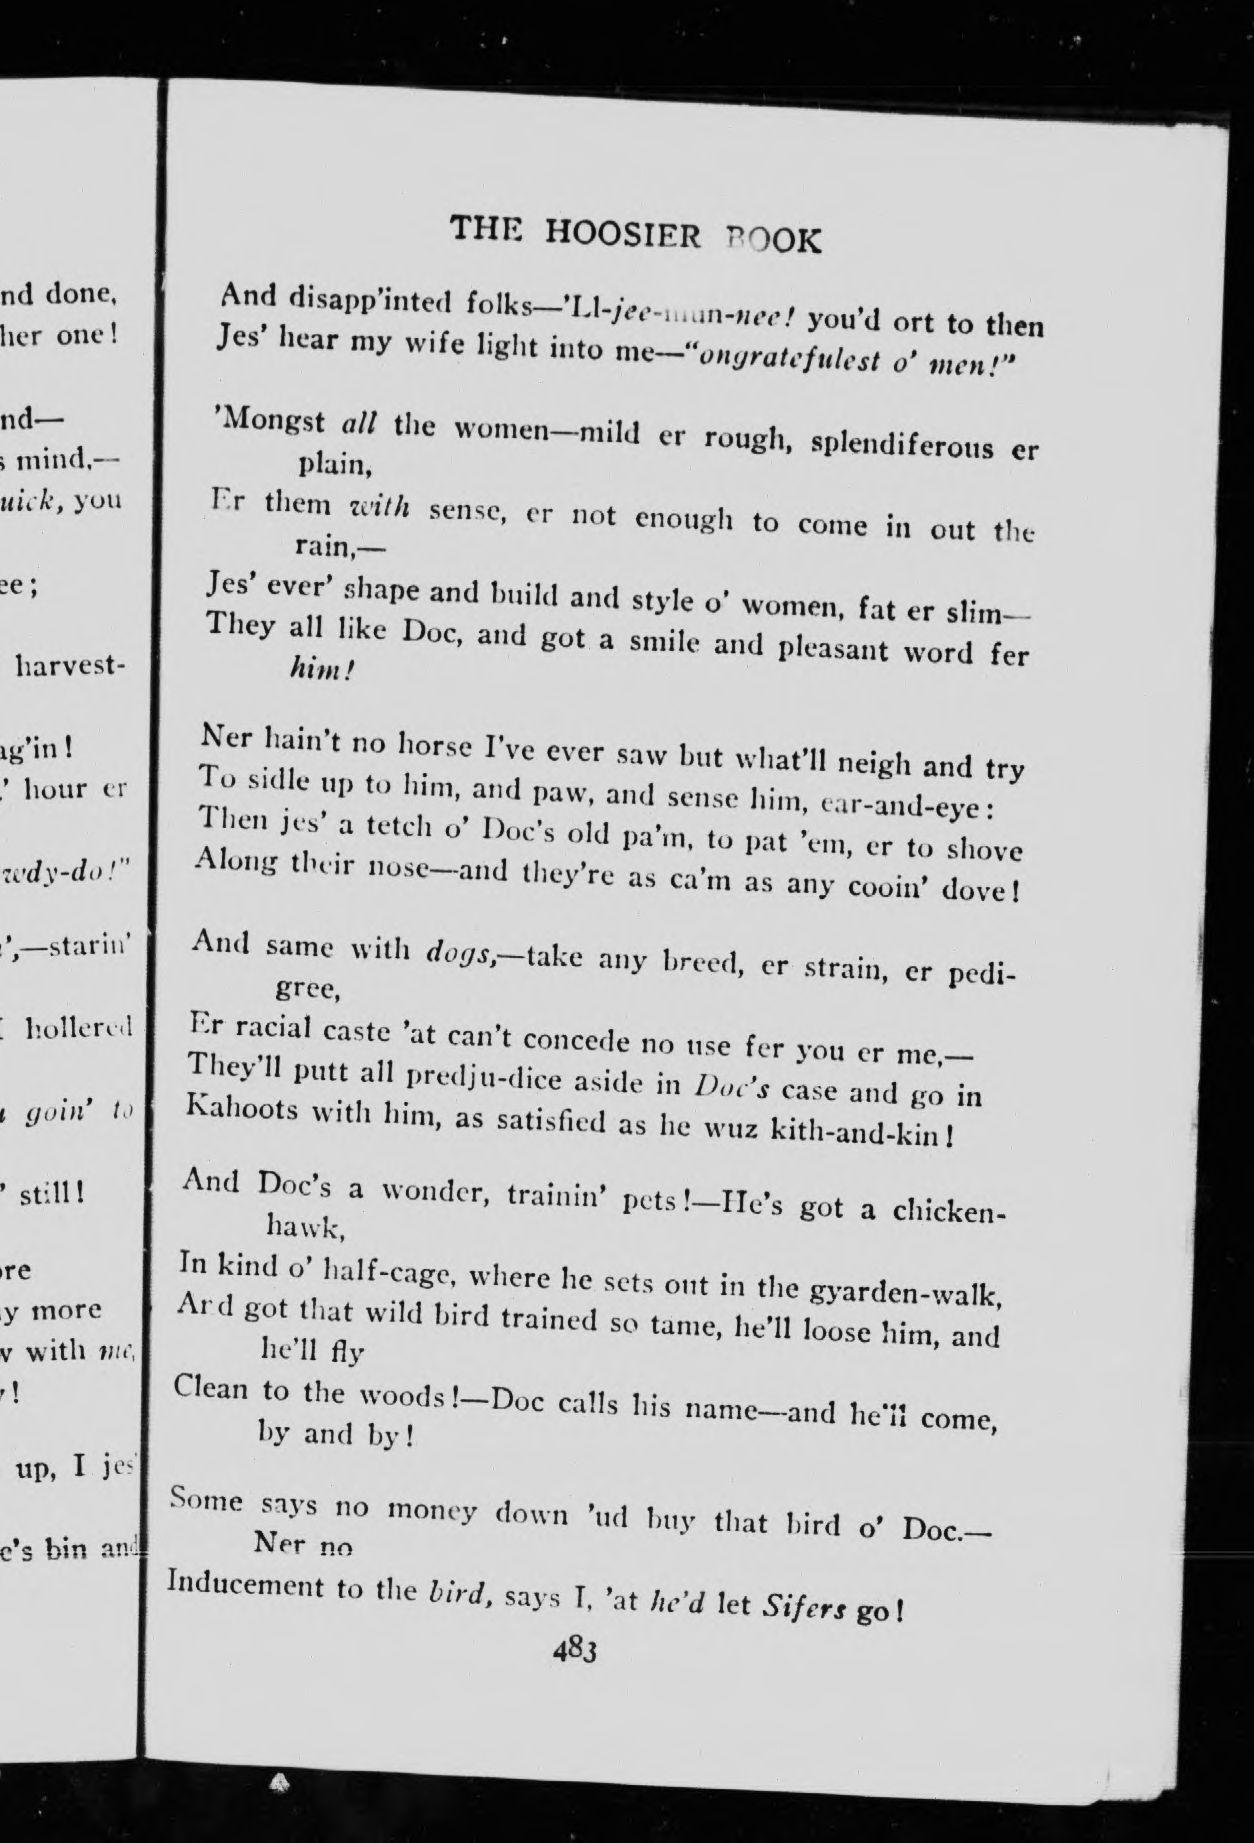 nd done,
her one!
nd—
s mind,—
uick, you
ee;
harvest-
ag'in!
,' hour er
wdy-do!"
',—starin'
I hollered
goin' to
' still!
ore
ay more
w with me,
y!
up, I jes'
e's bin and
THE HOOSIER BOOK
And disapp'inted folks—'Ll-jee-mun-nee! you'd ort to then
Jes' hear my wife light into me—"ongratefulest o' men!"
'Mongst all the women—mild er rough, splendiferous er
plain,
Er them with sense, er not enough to come in out the
rain,—
Jes' ever' shape and build and style o' women, fat er slim—
They all like Doc, and got a smile and pleasant word fer
him!
Ner hain't no horse I've ever saw but what'll neigh and try
To sidle up to him, and paw, and sense him, ear-and-eye:
Then jes' a tetch o' Doc's old pa'm, to pat 'em, er to shove
Along their nose—and they're as ca'm as any cooin' dove!
And same with dogs,—take any breed, er strain, er pedi-
gree,
Er racial caste 'at can't concede no use fer you er me,—
They'll putt all predju-dice aside in Doc's case and go in
Kahoots with him, as satisfied as he wuz kith-and-kin!
And Doc's a wonder, trainin' pets!—He's got a chicken-
hawk,
In kind o' half-cage, where he sets out in the gyarden-walk,
And got that wild bird trained so tame, he'll loose him, and
he'll fly
Clean to the woods!—Doc calls his name—and he'll come,
by and by!
Some says no money down 'ud buy that bird o' Doc.—
Ner no
Inducement to the bird, says I, 'at he'd let Sifers go!
483